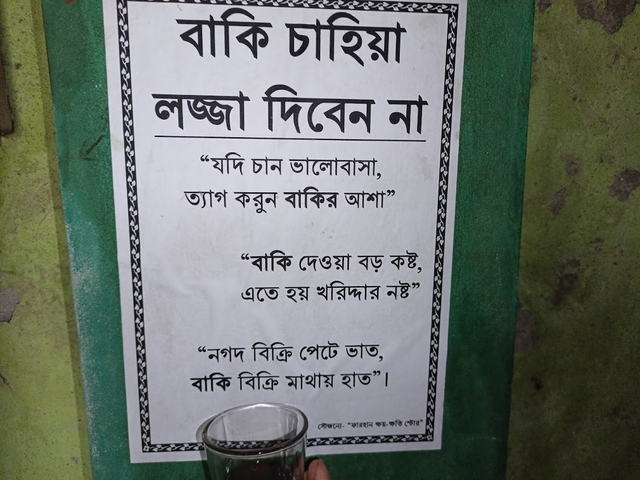 বাকি চাহিয়া
লজ্জা দিবেন না
“যদি চান ভালোবাসা,
ত্যাগ করুন বাকির আশা”
“বাকি দেওয়া বড় কষ্ট,
এতে হয় খরিদ্দার নষ্ট”
“নগদ বিক্রি পেটে ভাত,
বাকি বিক্রি মাথায় হাত”।
সৌজন্যে- “ফারহান ক্ষয়-ক্ষতি স্টোর”